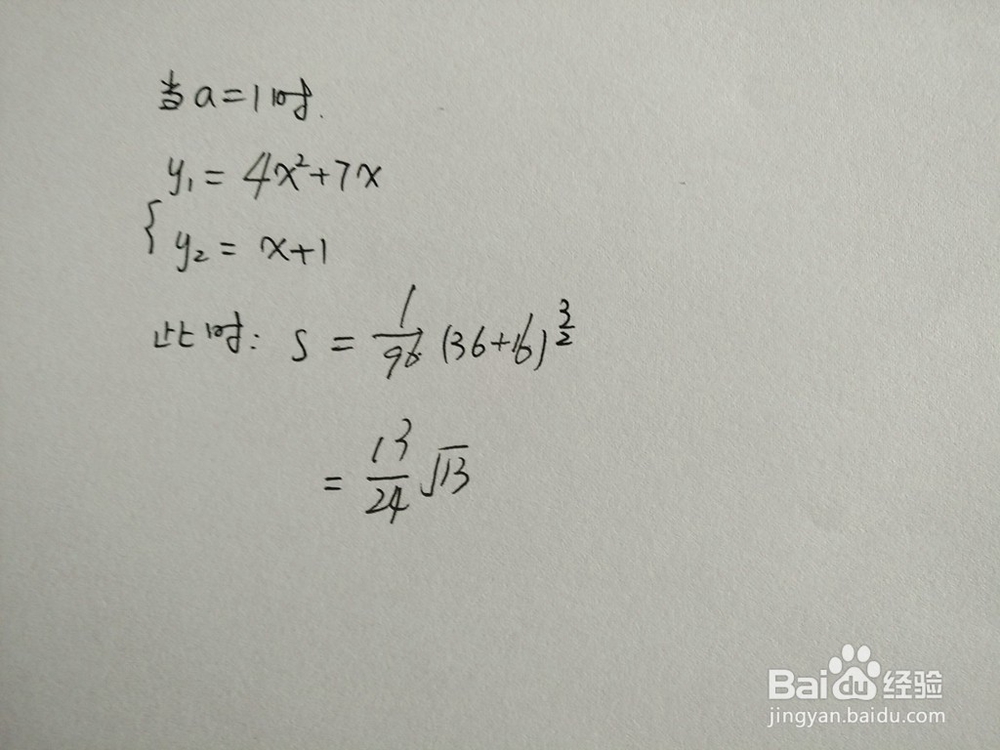 当a=1时.
y₁ = 4x²+7x
{ y₂ = x+1
此时: S = 1/96 (36+16)^(3/2)
= 13/24 √13
Baidu 经验
jingyan.baidu.com